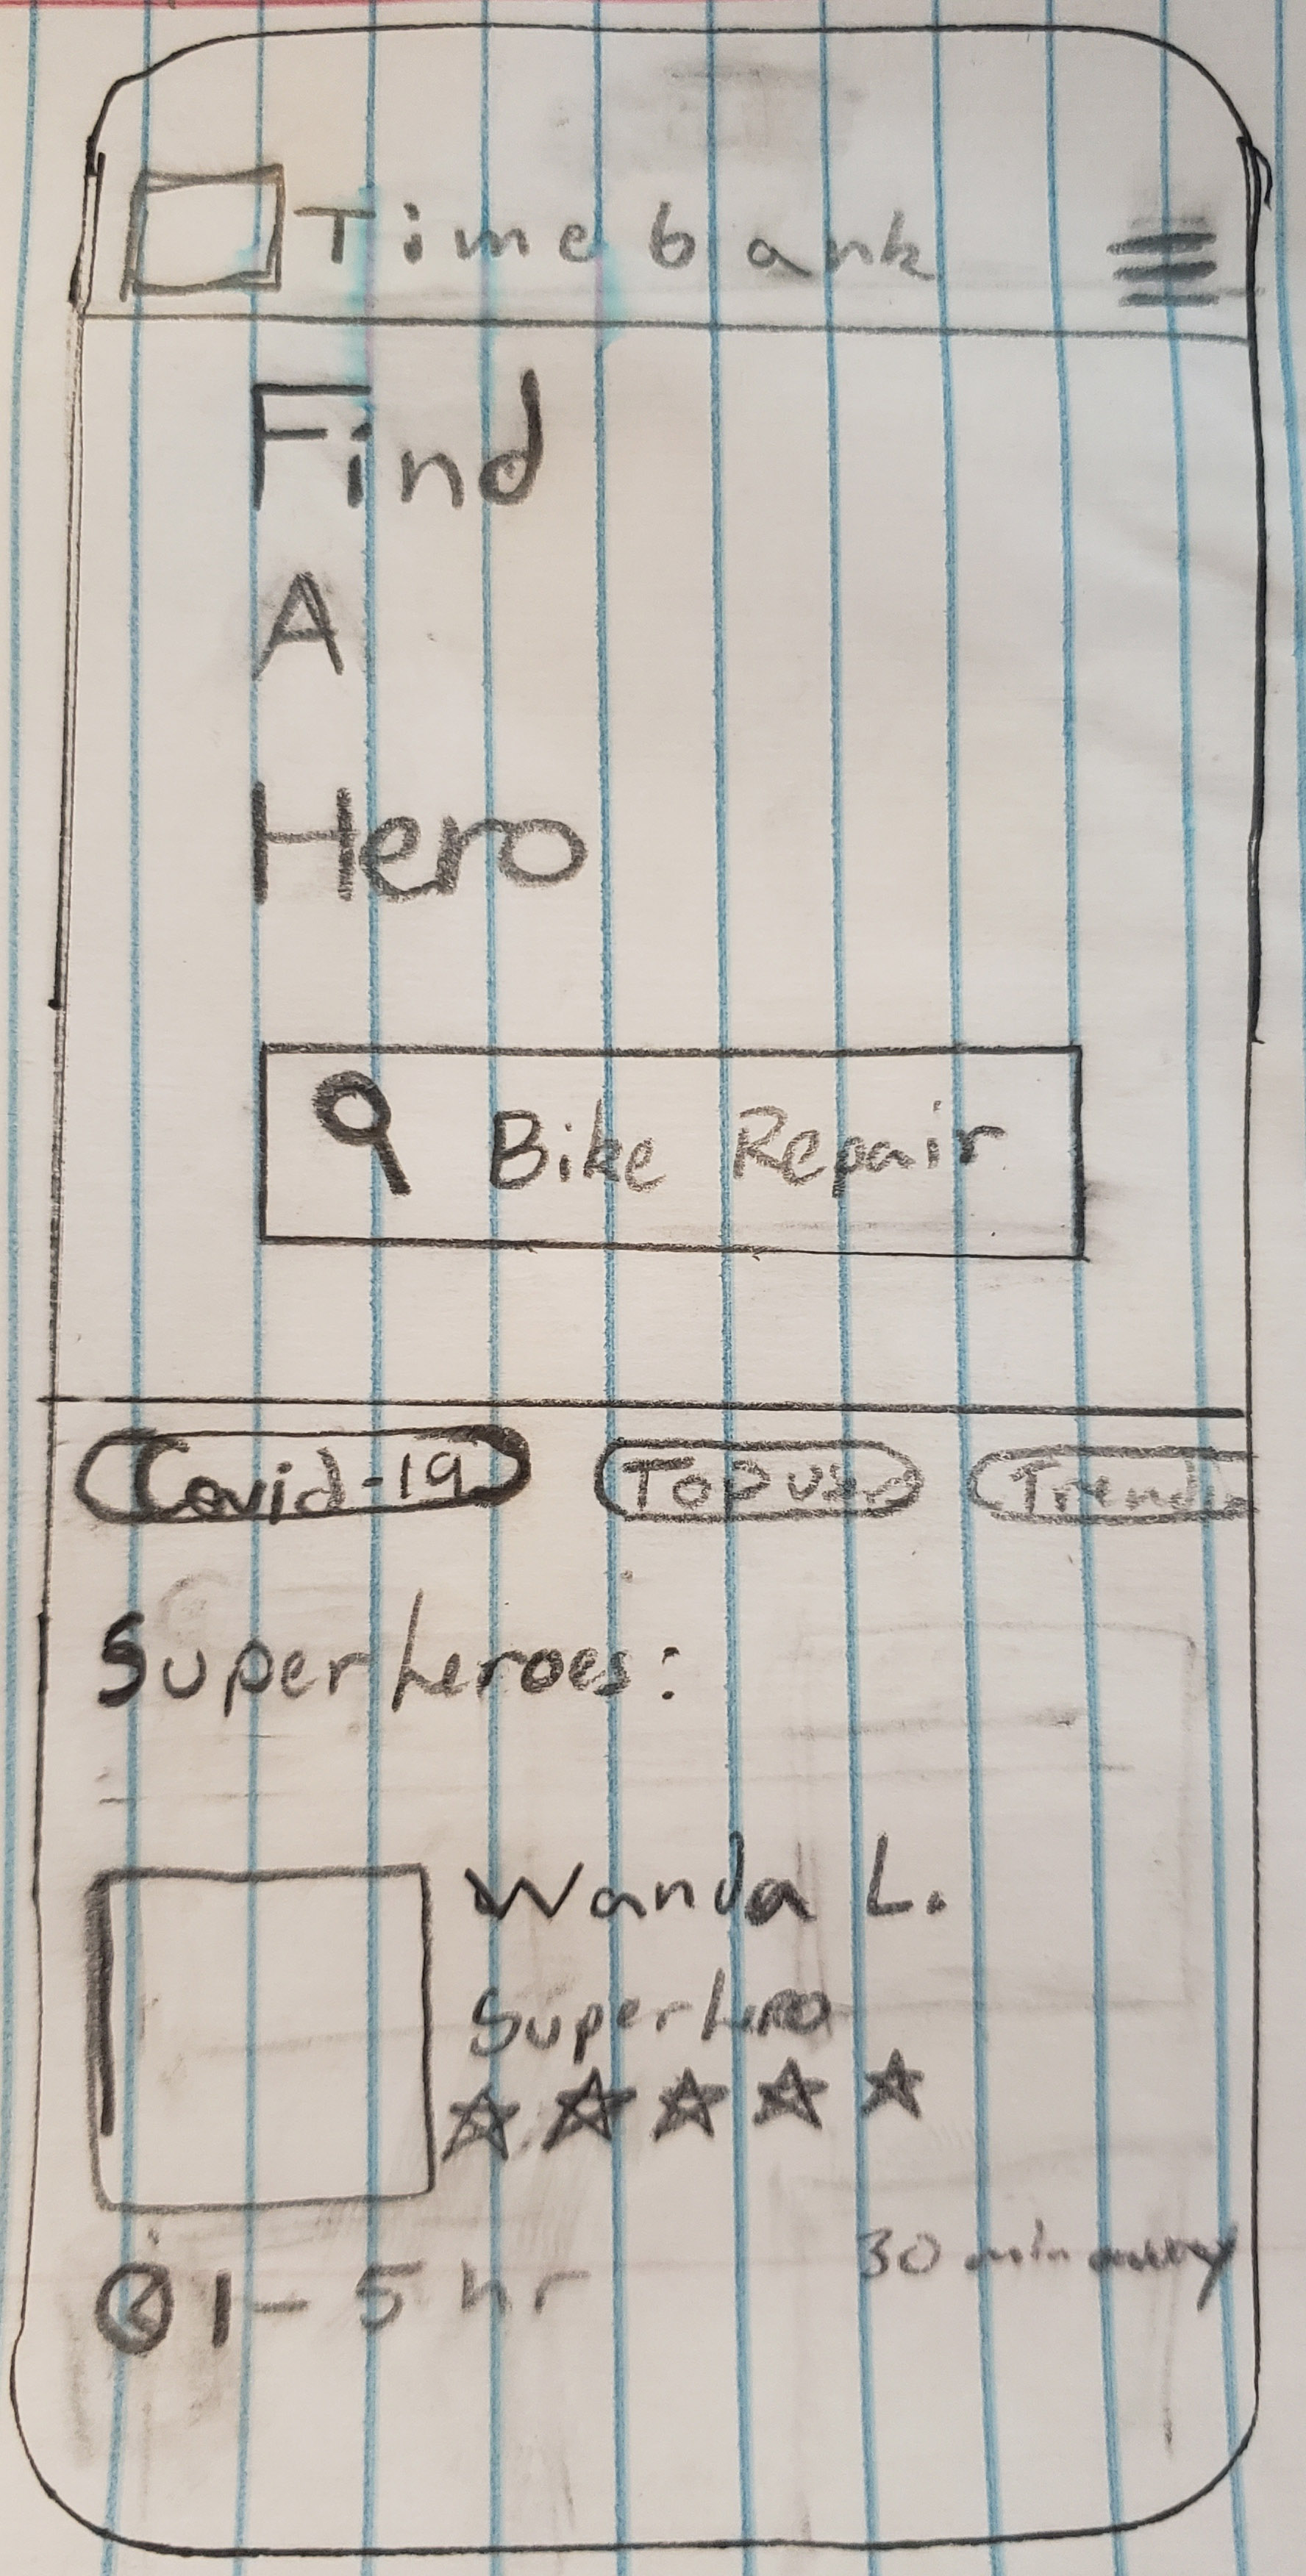 Timebank
Find
A
Hero
Bike Repair
Covid-19 Top user Trendin
Superheroes:
Wanda L.
Superhero
1-5 hr
30 min away